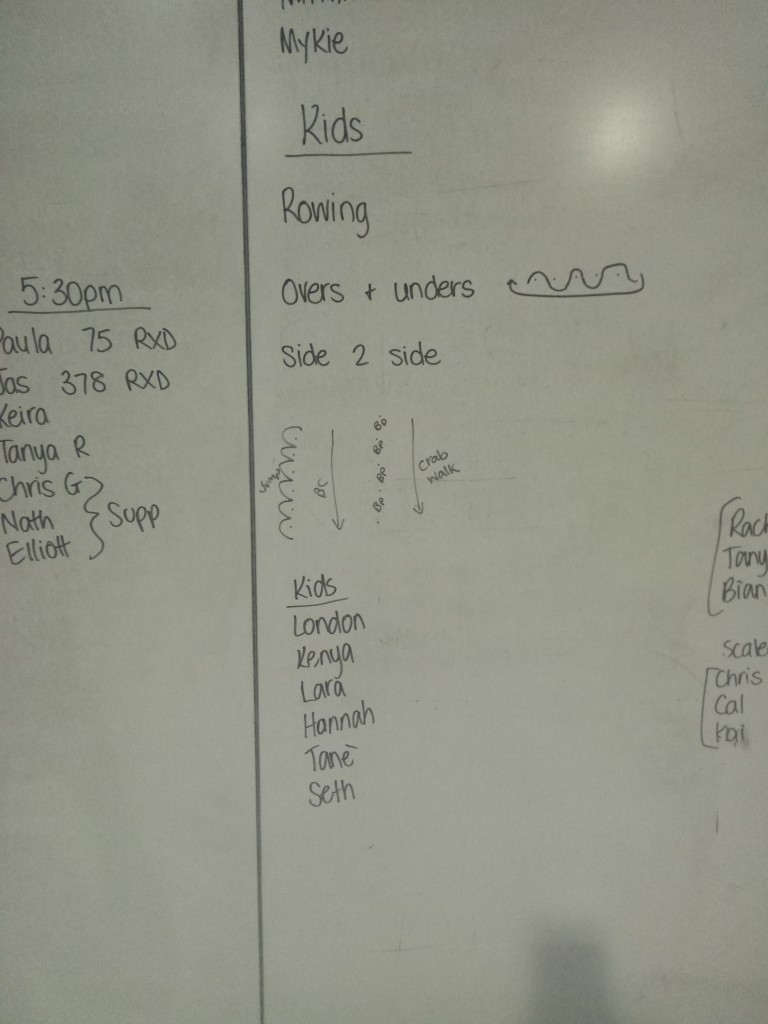 Mykie
Kids
Rowing
Overs + unders
Side 2 side
BC
Bp Bp Bp Bp
Crab
walk
Kids
London
Kenya
Lara
Hannah
Tanè
Seth
5:30pm
Paula 75 RXD
Jas 378 RXD
Keira
Tanya R
Chris G
Nath
Elliott
Supp
Rach
Tany
Bian
Scale
Chris
Cal
Kai